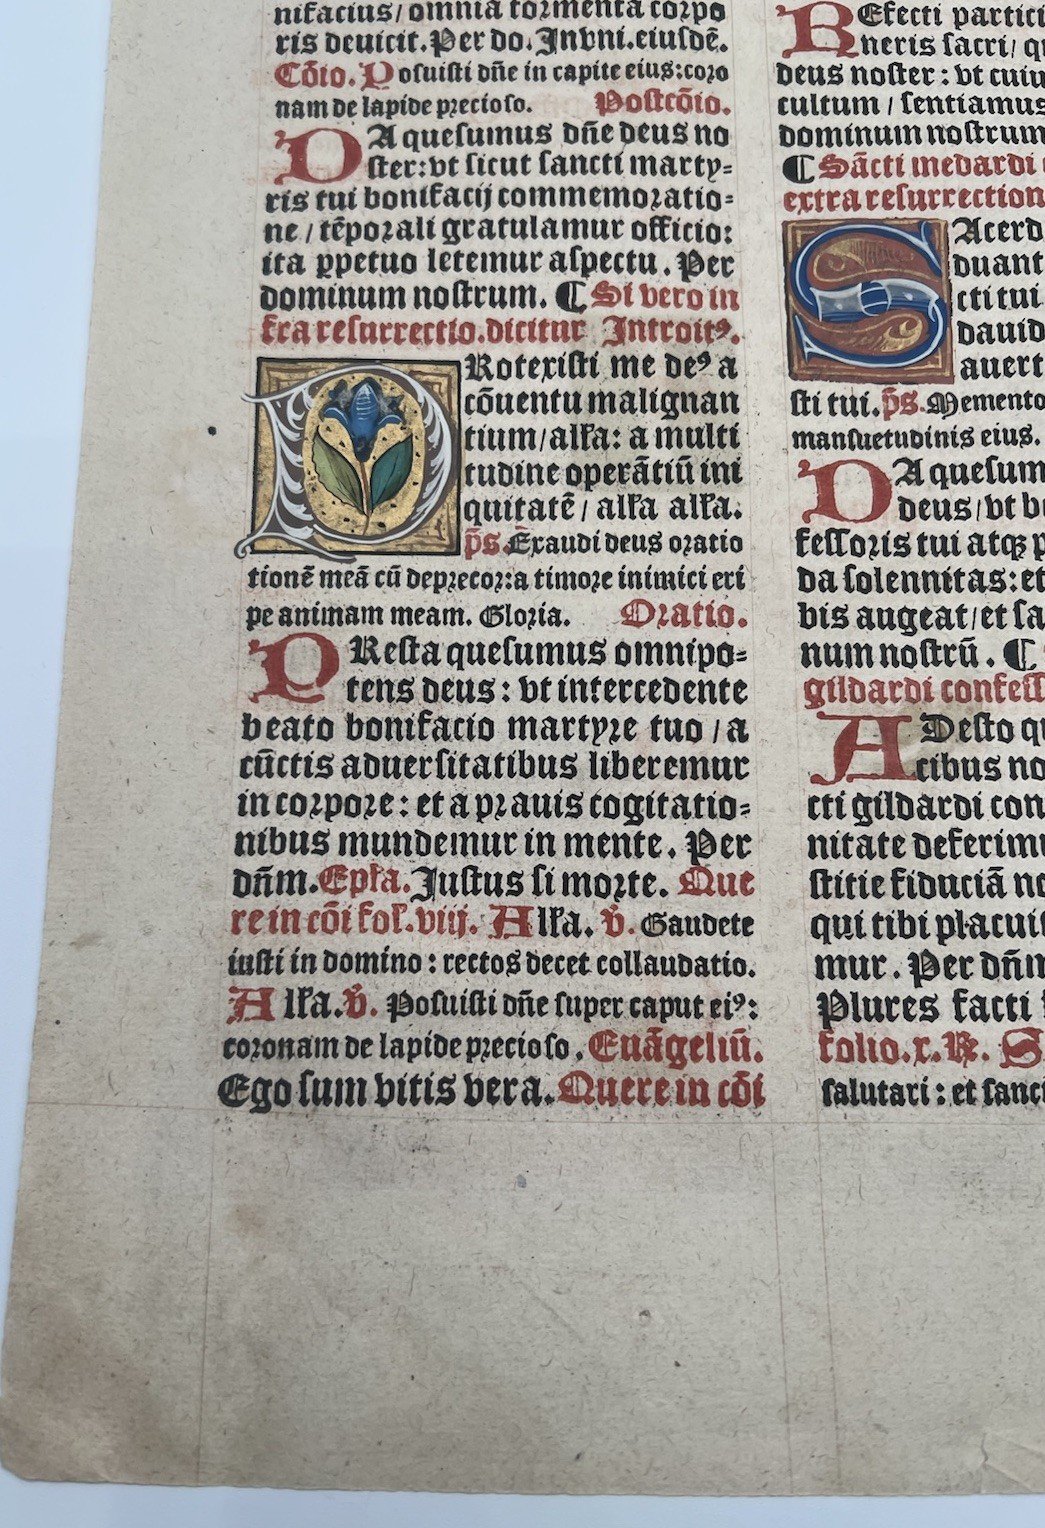 nifacius/ omnia tormenta corpo
ris deuicit. Per do. Inuni. eiusdē.
Cōio. Posuisti dn̄e in capite eius: coro
nam de lapide precioso. Postcōio.
DA quesumus dn̄e deus no
ster: vt sicut sancti marty⸗
ris tui bonifacij commemoratio⸗
ne / tēporali gratulamur officio:
ita ꝑpetuo letemur aspectu. Per
dominum nostrum. ¶ Si vero in
fra resurrectio. dicitur Introitꝰ.
PRotexisti me deꝰ a
cōuentu malignan
tium/ alľa: a multi
tudine operātiū ini
quitatē / alľa alľa.
p̄s. Exaudi deus oratio
tionē meā cū deprecor: a timore inimici eri
pe animam meam. Gloria. Oratio.
PResta quesumus omnipo⸗
tens deus: vt intercedente
beato bonifacio martyre tuo / a
cūctis aduersitatibus liberemur
in corpore: et a prauis cogitatio⸗
nibus mundemur in mente. Per
dn̄m. Epľa. Justus si morte. Que
re in cōi foľ. viij. Alľa. v̄. Gaudete
iusti in domino: rectos decet collaudatio.
Alľa. v̄. Posuisti dn̄e super caput eiꝰ:
coronam de lapide precioso. Euāgeliū.
Ego sum vitis vera. Quere in cōi
REfecti partici
neris sacri/
deus noster: vt cuiu
cultum / sentiamus
dominum nostrum
¶ Sācti medardi
extra resurrection
SAcerd
duant
cti tui
dauid
auert
sti tui. p̄s. Memento
mansuetudinis eius.
DA quesum
deus/ vt b
fessoris tui atqꝫ p
da solennitas: et
bis augeat/ et sa
num nostrū. ¶
gildardi confess
ADesto qu
cibus no
cti gildardi con
nitate deferimu
stitie fiduciā
qui tibi placuit
mur. Per dn̄m
Plures facti
folio. x. ℟. S
salutari: et sanct